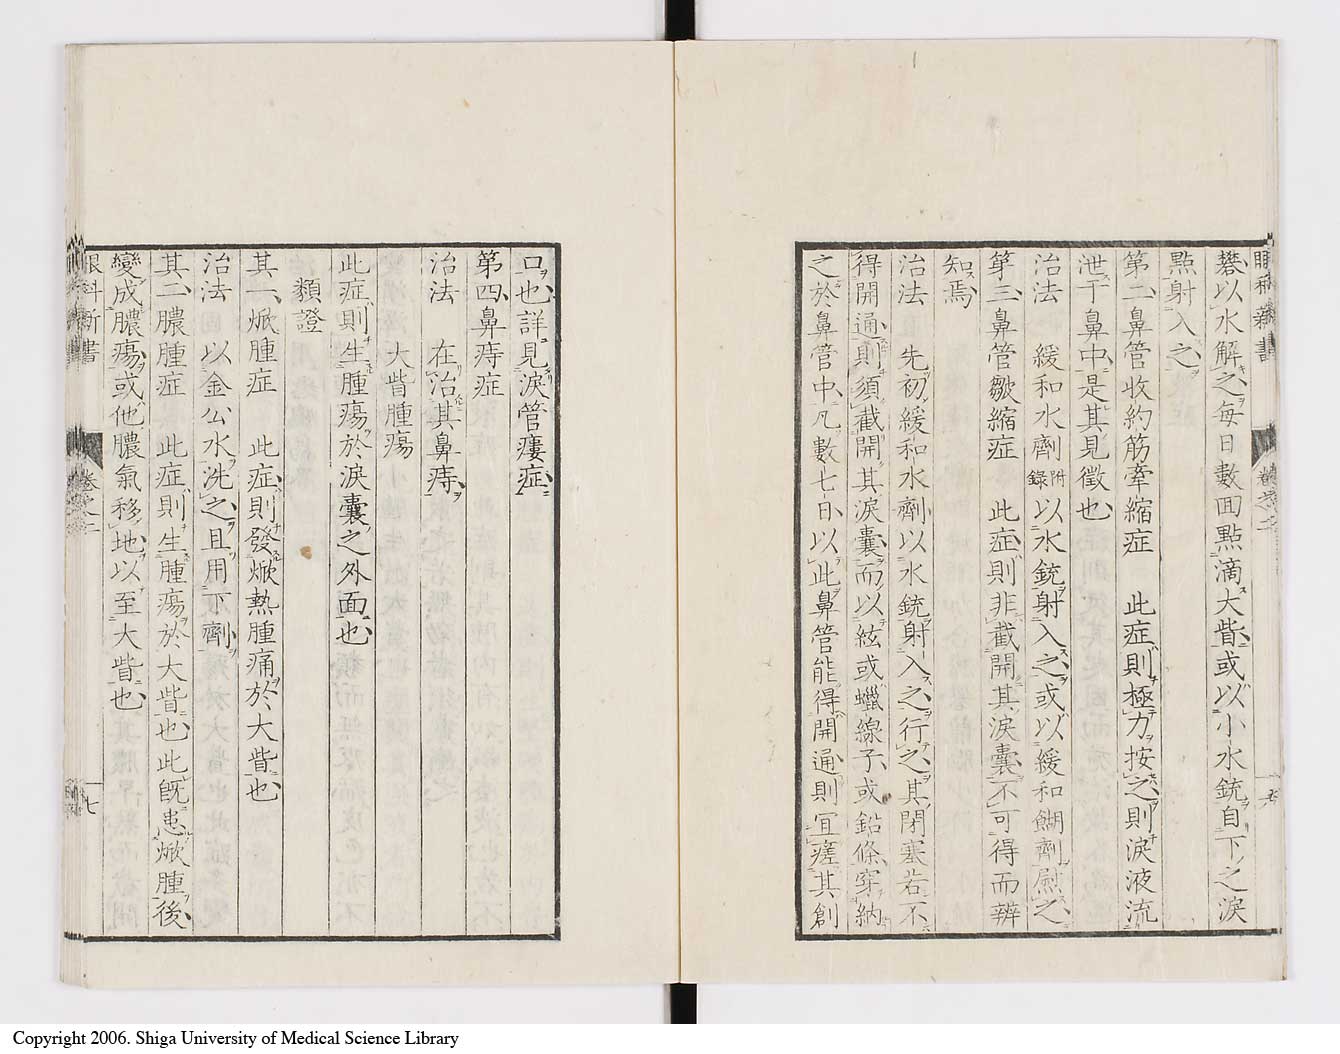 礬以水解之每日數回點滴大眥或以小水銃自下之淚
點射入之
第二鼻管收約筋牽縮症　此症則極力按之則淚液流
泄于鼻中是其見徵也
治法　緩和水劑附錄以水銃射入之或以緩和餬劑慰之
第三鼻管皺縮症　此症則非截開其淚囊不可得而辨
知焉
治法　先初緩和水劑以水銃射入之行之其閉塞若不
得開通則須截開其淚囊而以絃或蠟線子或鉛條穿納
之於鼻管中凡數七日以此鼻管能得開通則宜瘥其創
口也詳見淚管瘻症
第四鼻痔症
治法　在治其鼻痔
大眥腫瘍
此症則生腫瘍於淚囊之外面也
類證
其一焮腫症　此症則發焮熱腫痛於大眥也
治法　以金公水洗之且用下劑
其二膿腫症　此症則生腫瘍於大眥也此旣患焮腫後
變成膿瘍或他膿氣移地以至大眥也
眼科新書
卷之二
七
Copyright 2006. Shiga University of Medical Science Library